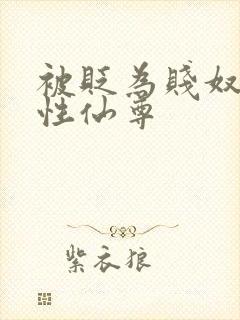 被贬为贱奴
性仙尊
紫衣狼